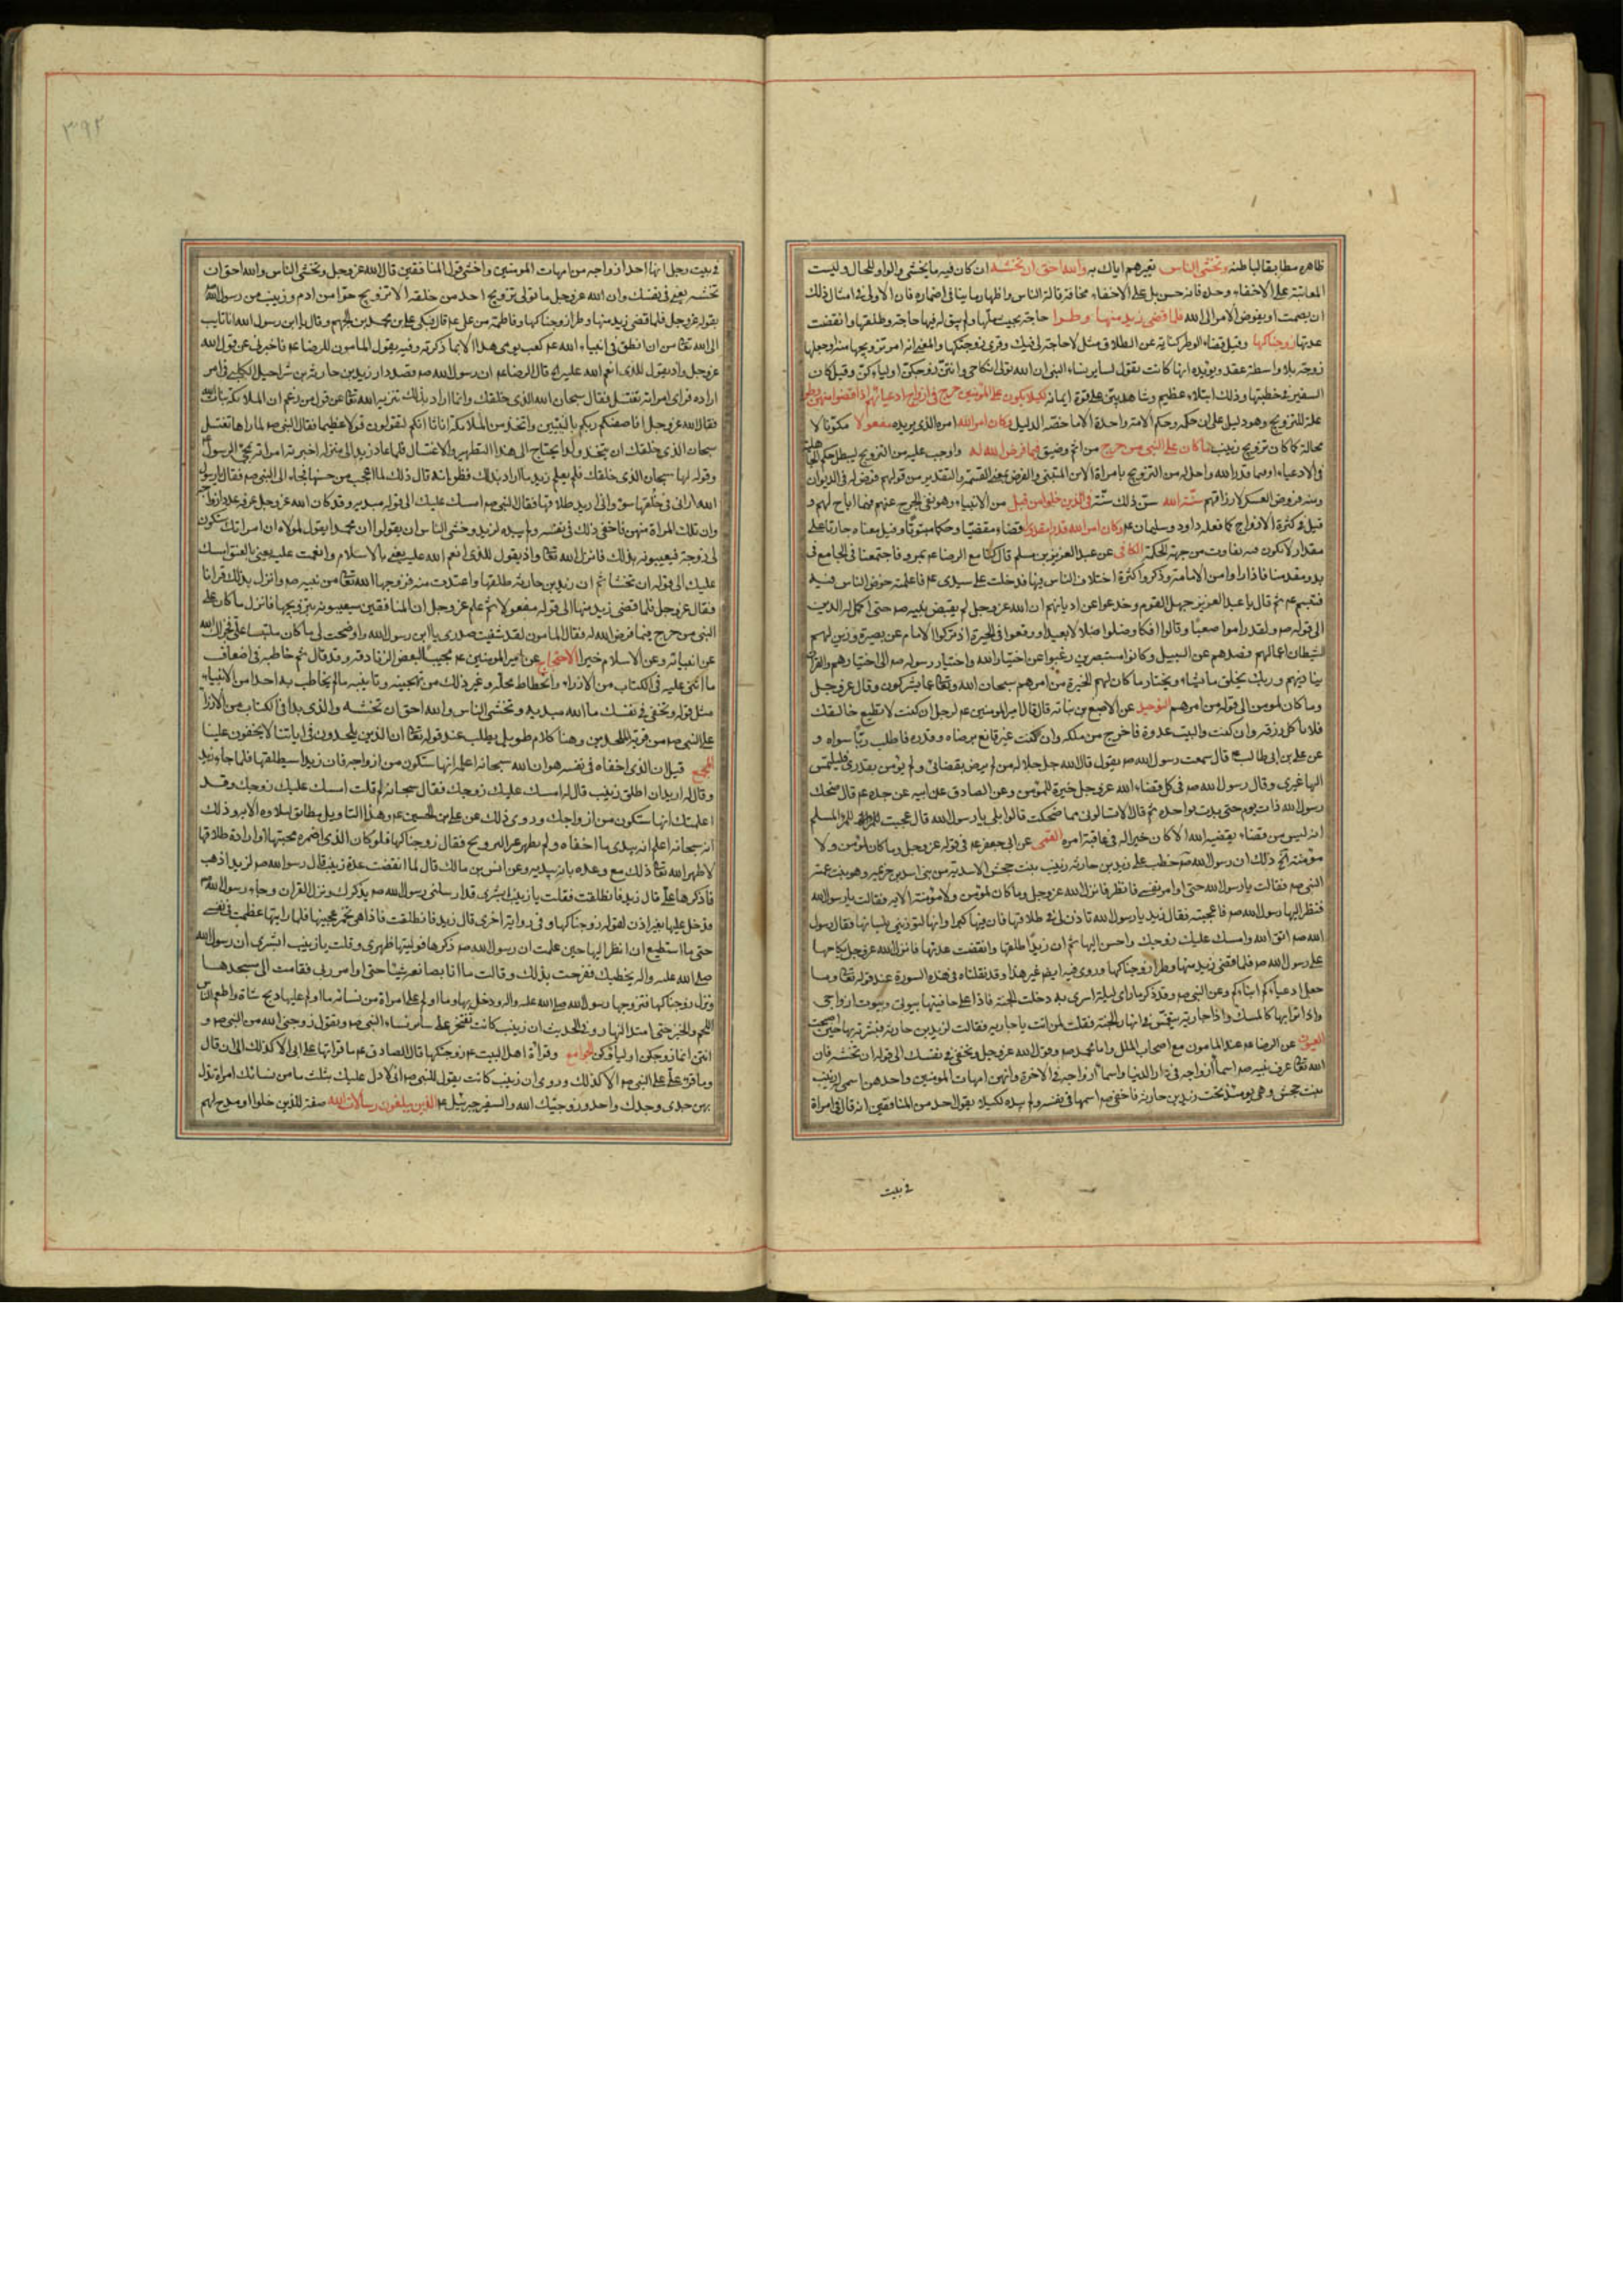 ظاهره مطابقا لباطنه وتخشى الناس تعييرهم اياك به والله احق ان تخشه ان كان فيه ما يخشى والواو للحال وليست
المعاتبة على الاخفاء وحده فانه حسن بل على الاخفاء مخافة قالة الناس واظهار ما ينافي اضماره فان الاولى في امثال ذلك
ان يصمت او يفوض الامر الى الله فلما قضى زيد منها وطرا حاجة بحيث ملها ولم يبق له فيها حاجة وطلقها وانقضت
عدتها زوجناكها وقيل قضاء الوطر كناية عن الطلاق مثل لا حاجة لي فيك وقرئ زوجتكها والمعنى انه امر بتزويجها منه او جعلها
زوجته بلا واسطة عقد ويؤيده انها كانت تقول لساير نساء النبي ان الله تولى انكاحي وانتن زوجكن اولياءكن وقيل كان
السفير في خطبتها وذلك ابتلاء عظيم وشاهد بين على قوة ايمانه لكيلا يكون على المؤمنين حرج في ازواج ادعيائهم اذا قضوا منهن وطرا
علة للتزويج وهو دليل على ان حكمه وحكم الامة واحد الا ما خصه الدليل وكان امر الله امره الذي يريده مفعولا مكونا لا
محالة كما كان تزويج زينب ما كان على النبي من حرج من اثم وضيق فيما فرض الله له واوجب عليه من التزويج ليبطل حكم الجاهلية
في الادعياء او فيما قدر الله واحل له من التزويج بامراة الابن المتبنى والفرض بمعنى القسمة والتقدير من قولهم فرض له في الديوان
ومنه فروض العسكر لارزاقهم سنة الله سن ذلك سنة في الذين خلوا من قبل من الانبياء وهو نفي الحرج عنهم فيما اباح لهم و
قيل في كثرة الازواج كما فعله داود وسليمان عم وكان امر الله قدرا مقدورا قضاء مقضيا وحكما مبتوتا وقيل معناه جاريا على
مقدار لا يكون فيه تفاوت من جهة الحكمة الكافي عن عبد العزيز بن مسلم قال كنا مع الرضا عم بمرو فاجتمعنا في الجامع في
بدو مقدمنا فاداروا امر الامامة وذكروا كثرة اختلاف الناس فيها فدخلت على سيدي عم فاعلمته خوض الناس فيه
فتبسم عم ثم قال يا عبد العزيز جهل القوم وخدعوا عن اديانهم ان الله عز وجل لم يقبض نبيه صم حتى اكمل له الدين
الى قوله صم ولقد راموا صعبا وقالوا افكا وضلوا ضلالا بعيدا ووقعوا في الحيرة اذ تركوا الامام عن بصيرة وزين لهم
الشيطان اعمالهم فصدهم عن السبيل وكانوا مستبصرين رغبوا عن اختيار الله واختيار رسوله صم الى اختيارهم والقران
يناديهم وربك يخلق ما يشاء ويختار ما كان لهم الخيرة من امرهم سبحان الله وتعالى عما يشركون وقال عز وجل
وما كان لمومن الى قوله من امرهم التوحيد عن الاصبغ بن نباتة قال قال امير المومنين عم لرجل ان كنت لا تطيع خالقك
فلا تاكل رزقه وان كنت واليت عدوه فاخرج من ملكه وان كنت غير قانع برضاه وقدره فاطلب ربا سواه و
عن علي بن ابي طالب عم قال سمعت رسول الله صم يقول قال الله جل جلاله من لم يرض بقضائي ولم يؤمن بقدري فليلتمس
الها غيري وقال رسول الله صم في كل قضاء الله عز وجل خيرة للمؤمن وعن الصادق عن ابيه عن جده عم قال ضحك
رسول الله ذات يوم حتى بدت نواجذه ثم قال الا تسالوني مما ضحكت قالوا بلى يا رسول الله قال عجبت للمرء المسلم
انه ليس من قضاء يقضيه الله الا كان خيرا له في عاقبة امره القمي عن ابي جعفر عم في قوله عز وجل وما كان لمؤمن ولا
مؤمنة الخ ذلك ان رسول الله صم خطب على زيد بن حارثة زينب بنت جحش الاسدية من بني اسد بن خزيمة وهي بنت عمة
النبي صم فقالت يا رسول الله حتى اوامر نفسي فانظر فانزل الله عز وجل وما كان لمؤمن ولا مؤمنة الاية فقالت يا رسول الله
فنظر اليها رسول الله صم فاعجبته فقال زيد يا رسول الله تاذن لي في طلاقها فان فيها كبرا وانها لتؤذيني بلسانها فقال رسول
الله صم اتق الله وامسك عليك زوجك واحسن اليها ثم ان زيدا طلقها وانقضت عدتها فانزل الله عز وجل نكاحها
على رسول الله صم فلما قضى زيد منها وطرا زوجناكها وروى فيه ايضا غير هذا وقد نقلناه في هذه السورة عند قوله تعالى وما
جعل ادعياءكم ابناءكم وعن النبي صم وقد ذكر ما راى ليلة اسرى به دخلت الجنة فاذا على حافتيها بيوتي وبيوت ازواجي
واذا ترابها كالمسك واذا جارية تنغمس في انهار الجنة فقلت لمن انت يا جارية فقالت لزيد بن حارثة فبشرته بها حين اصبحت
العيون عن الرضا عم عند المامون مع اصحاب الملل واما محمد صم وقول الله عز وجل وتخفي في نفسك الى قوله ان تخشه فان
الله تعالى عرف نبيه صم اسماء ازواجه في دار الدنيا واسماء ازواجه في الاخرة وانهن امهات المومنين واحدهن اسمى له زينب
بنت جحش وهي يومئذ تحت زيد بن حارثة فاخفى صم اسمها في نفسه ولم يبده لكيلا يقول احد من المنافقين انه قال في امراة
في بيت
٣٩٢
في بيت رجل انها احد ازواجه من امهات المومنين واخشى قول المنافقين قال الله عز وجل وتخشى الناس والله احق ان
تخشه يعني في نفسك وان الله عز وجل ما تولى تزويج احد من خلقه الا تزويج حوا من ادم وزينب من رسول الله
بقوله عز وجل فلما قضى زيد منها وطرا زوجناكها وفاطمة من علي عم قال فبكى علي بن محمد بن الجهم وقال يا ابن رسول الله انا تايب
الى الله تعالى من ان انطق في انبياء الله عم بعد يومي هذا الا بما ذكرته وفيه يقول المامون للرضا عم فاخبرني عن قول الله
عز وجل واذ تقول للذي انعم الله عليه قال الرضا عم ان رسول الله صم قصد دار زيد بن حارثة بن شراحيل الكلبي في امر
اراده فراى امراته تغتسل فقال سبحان الله الذي خلقك وانما اراد بذلك تنزيه الله تعالى عن قول من زعم ان الملائكة بنات الله
فقال الله عز وجل افاصفيكم ربكم بالبنين واتخذ من الملائكة اناثا انكم لتقولون قولا عظيما فقال النبي صم لما راها تغتسل
سبحان الذي خلقك ان يتخذ ولدا يحتاج الى هذا التطهير والاغتسال فلما عاد زيد الى منزله اخبرته امراته بمجئ الرسول
وقوله لها سبحان الذي خلقك فلم يعلم زيد ما اراد بذلك فظن انه قال ذلك لما اعجب من حسنها فجاء الى النبي صم فقال يا رسول
الله ان امراتي في خلقها سوء واني اريد طلاقها فقال النبي صم امسك عليك الى قوله مبديه وقد كان الله عز وجل عرفه عدد ازواجه
وان تلك المراة منهن فاخفى ذلك في نفسه ولم يبده لزيد وخشي الناس ان يقولوا ان محمدا يقول لمولاه ان امراتك ستكون
لي زوجة فيعيبونه بذلك فانزل الله تعالى واذ تقول للذي انعم الله عليه يعني بالاسلام وانعمت عليه يعني بالعتق امسك
عليك الى قوله ان تخشاه ثم ان زيد بن حارثة طلقها واعتدت منه فزوجها الله تعالى من نبيه صم وانزل بذلك قرانا
فقال عز وجل فلما قضى زيد منها الى قوله مفعولا ثم علم عز وجل ان المنافقين سيعيبونه بتزويجها فانزل ما كان على
النبي من حرج فيما فرض الله له فقال المامون لقد شفيت صدري يا ابن رسول الله واوضحت لي ما كان ملتبسا علي فجزاك الله
عن انبيائه وعن الاسلام خيرا الاحتجاج عن امير المومنين عم مجيبا لبعض الزنادقة وقد قال ثم خاطبه في اضعاف
ما اثنى عليه في الكتاب من الازراء وانخفاض محله وغير ذلك من تهجينه وتانيبه ما لم يخاطب به احدا من الانبياء
مثل قوله وتخفي في نفسك ما الله مبديه وتخشى الناس والله احق ان تخشه والذي بدا في الكتاب من الازراء
على النبي صم من فرية الملحدين وهنا كلام طويل يطلب عند قوله تعالى ان الذين يلحدون في اياتنا لا يخفون علينا
المجمع قيل ان الذي اخفاه في نفسه هو ان الله سبحانه اعلمه انها ستكون من ازواجه فان زيدا سيطلقها فلما جاء زيد
وقال له اريد ان اطلق زينب قال له امسك عليك زوجك فقال سبحانه لم قلت امسك عليك زوجك وقد
اعلمتك انها ستكون من ازواجك وروى ذلك عن علي بن الحسين عم وهذا التاويل مطابق لتلاوة الاية وذلك
انه سبحانه اعلم انه يبدي ما اخفاه ولم يظهر غير التزويج فقال زوجناكها فلو كان الذي اضمره محبتها او ارادة طلاقها
لاظهر الله تعالى ذلك مع وعده بانه يبديه وعن انس بن مالك قال لما انقضت عدة زينب قال رسول الله صم لزيد اذهب
فاذكرها علي قال زيد فانطلقت فقلت يا زينب ابشري قد ارسلني رسول الله صم يذكرك ونزل القران وجاء رسول الله
فدخل عليها بغير اذن لقوله زوجناكها وفي رواية اخرى قال زيد فانطلقت فاذا هي تخمر عجينها فلما رايتها عظمت في نفسي
حتى ما استطيع ان انظر اليها حين علمت ان رسول الله صم ذكرها فوليتها ظهري وقلت يا زينب ابشري ان رسول الله
صلى الله عليه واله يخطبك ففرحت بذلك وقالت ما انا بصانعة شيئا حتى اوامر ربي فقامت الى مسجدها
ونزل زوجناكها فتزوجها رسول الله صلى الله عليه واله ودخل بها وما اولم على امراة من نسائه ما اولم عليها ذبح شاة واطعم الناس
اللحم والخبز حتى امتد النهار وفي الحديث ان زينب كانت تفتخر على ساير نساء النبي صم وتقول زوجني الله من النبي صم و
انتن انما زوجكن اولياؤكن الجوامع وقراة اهل البيت عم زوجتكها قال الصادق عم ما قراتها على ابي الا كذلك الى ان قال
وما قرء علي على النبي صم الا كذلك وروى ان زينب كانت تقول للنبي صم اني لادل عليك بثلث ما من نسائك امراة تدل
بهن جدي وجدك واحد وزوجنيك الله والسفير جبرئيل عم الذين يبلغون رسالات الله صفة للذين خلوا او مدح لهم